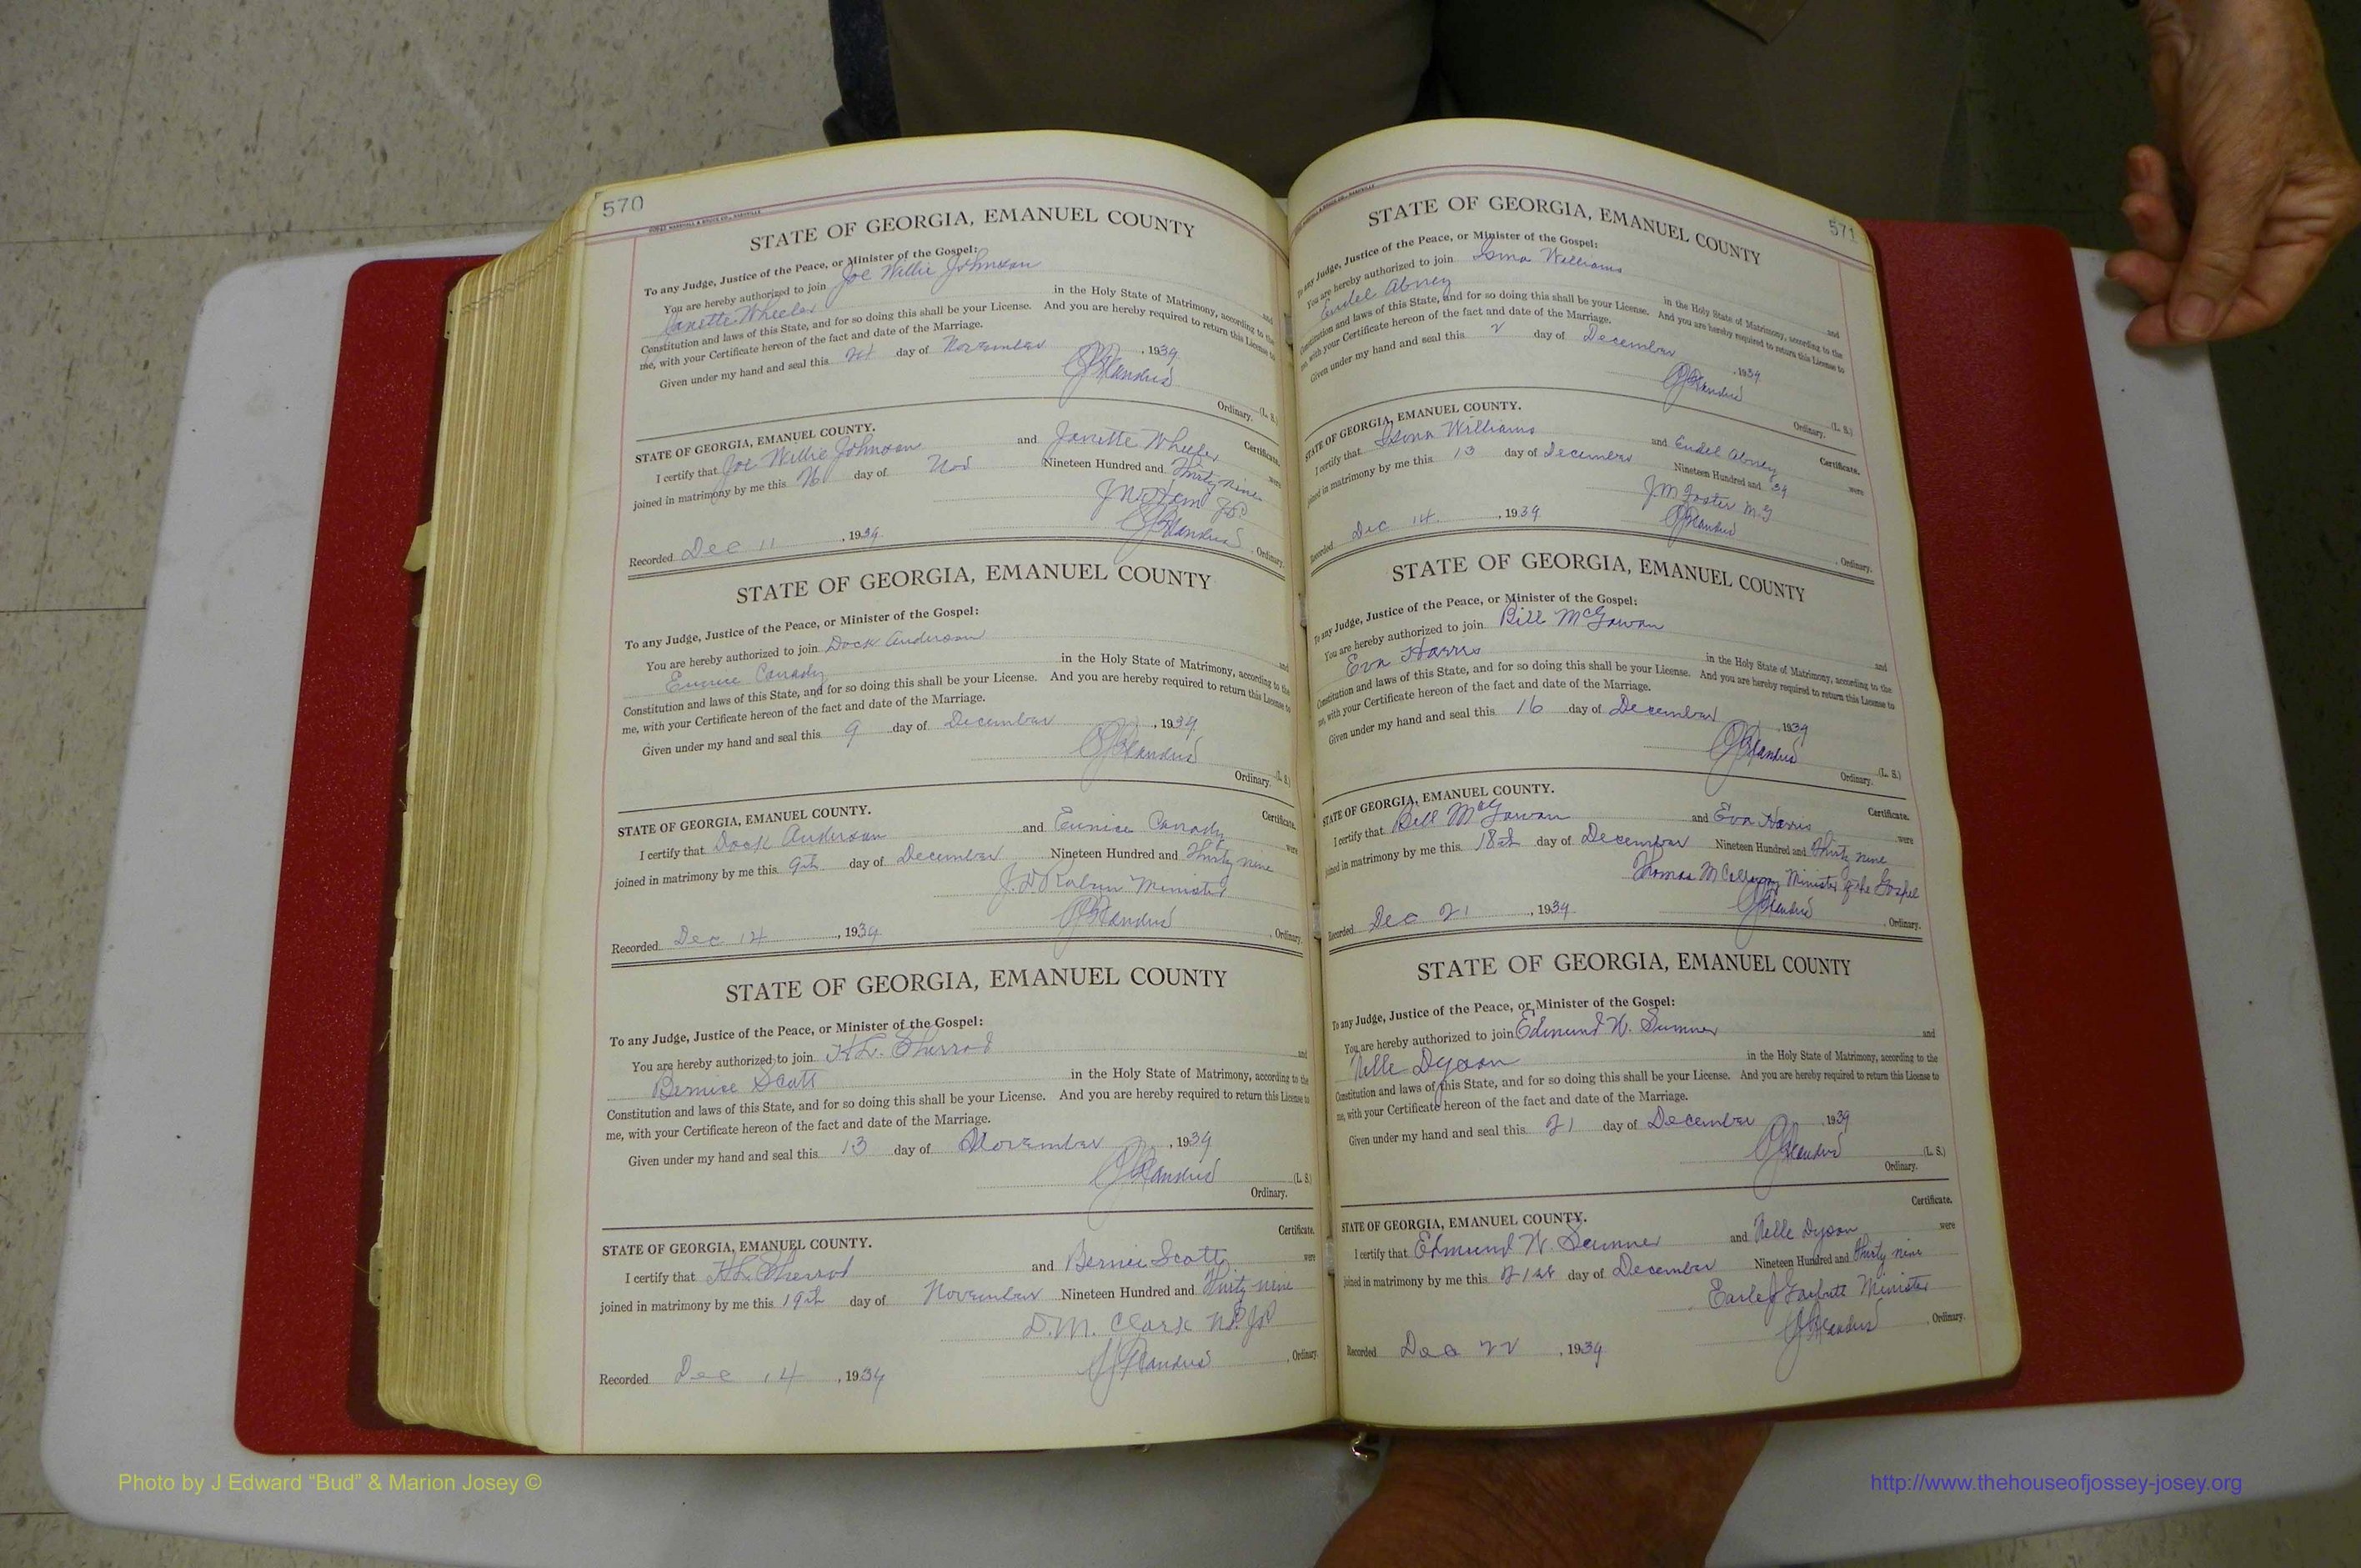 570
STATE OF GEORGIA, EMANUEL COUNTY
To any Judge, Justice of the Peace, or Minister of the Gospel:
You are hereby authorized to join Joe Willie Johnson and
Janette Wheeler in the Holy State of Matrimony, according to the
Constitution and laws of this State, and for so doing this shall be your License. And you are hereby required to return this License to
me, with your Certificate hereon of the fact and date of the Marriage.
Given under my hand and seal this day of November, 1939
(L. S.)
Ordinary.
STATE OF GEORGIA, EMANUEL COUNTY. Certificate.
I certify that Joe Willie Johnson and Janette Wheeler were
joined in matrimony by me this 26 day of Nov Nineteen Hundred and Thirty nine
Recorded Dec 11, 1939 , Ordinary.
STATE OF GEORGIA, EMANUEL COUNTY
To any Judge, Justice of the Peace, or Minister of the Gospel:
You are hereby authorized to join Dock Anderson and
Eunice Canady in the Holy State of Matrimony, according to the
Constitution and laws of this State, and for so doing this shall be your License. And you are hereby required to return this License to
me, with your Certificate hereon of the fact and date of the Marriage.
Given under my hand and seal this 9 day of December, 1939
(L. S.)
Ordinary.
STATE OF GEORGIA, EMANUEL COUNTY. Certificate.
I certify that Dock Anderson and Eunice Canady were
joined in matrimony by me this 9th day of December Nineteen Hundred and Thirty nine
Minister
Recorded Dec 14, 1939 , Ordinary.
STATE OF GEORGIA, EMANUEL COUNTY
To any Judge, Justice of the Peace, or Minister of the Gospel:
You are hereby authorized to join H.L. Sherrod and
Bernice Scott in the Holy State of Matrimony, according to the
Constitution and laws of this State, and for so doing this shall be your License. And you are hereby required to return this License to
me, with your Certificate hereon of the fact and date of the Marriage.
Given under my hand and seal this 13 day of November, 1939
(L. S.)
Ordinary.
Certificate.
STATE OF GEORGIA, EMANUEL COUNTY.
I certify that H.L. Sherrod and Bernice Scott were
joined in matrimony by me this 19th day of November Nineteen Hundred and Thirty nine
D.M. Clark N.P. JP
Recorded Dec 14, 1939 , Ordinary.
571
STATE OF GEORGIA, EMANUEL COUNTY
To any Judge, Justice of the Peace, or Minister of the Gospel:
You are hereby authorized to join Isma Williams and
Eudel Abney in the Holy State of Matrimony, according to the
Constitution and laws of this State, and for so doing this shall be your License. And you are hereby required to return this License to
me, with your Certificate hereon of the fact and date of the Marriage.
Given under my hand and seal this 2 day of December, 1939
(L. S.)
Ordinary.
STATE OF GEORGIA, EMANUEL COUNTY. Certificate.
I certify that Isma Williams and Eudel Abney were
joined in matrimony by me this 13 day of December Nineteen Hundred and 39
J M Foster M.G
Recorded Dec 14, 1939 , Ordinary.
STATE OF GEORGIA, EMANUEL COUNTY
To any Judge, Justice of the Peace, or Minister of the Gospel:
You are hereby authorized to join Bill McGowan and
Eva Harris in the Holy State of Matrimony, according to the
Constitution and laws of this State, and for so doing this shall be your License. And you are hereby required to return this License to
me, with your Certificate hereon of the fact and date of the Marriage.
Given under my hand and seal this 16 day of December, 1939
(L. S.)
Ordinary.
STATE OF GEORGIA, EMANUEL COUNTY. Certificate.
I certify that Bill McGowan and Eva Harris were
joined in matrimony by me this 18th day of December Nineteen Hundred and Thirty nine
Thomas Minister of the Gospel
Recorded Dec 21, 1939 , Ordinary.
STATE OF GEORGIA, EMANUEL COUNTY
To any Judge, Justice of the Peace, or Minister of the Gospel:
You are hereby authorized to join Edmund W. Sumner and
Nelle Dyson in the Holy State of Matrimony, according to the
Constitution and laws of this State, and for so doing this shall be your License. And you are hereby required to return this License to
me, with your Certificate hereon of the fact and date of the Marriage.
Given under my hand and seal this 21 day of December 1939
(L. S.)
Ordinary.
Certificate.
STATE OF GEORGIA, EMANUEL COUNTY.
I certify that Edmund W. Sumner and Nelle Dyson were
joined in matrimony by me this 21st day of December Nineteen Hundred and Thirty nine
Minister
, Ordinary.
Recorded Dec 22, 1939
Photo by J Edward “Bud” & Marion Josey ©
http://www.thehouseofjossey-josey.org